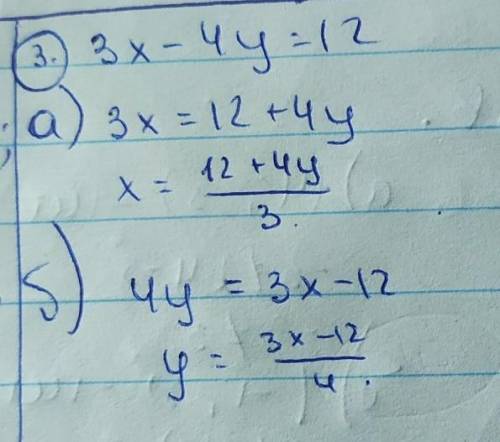 3. 3x - 4y = 12
а) 3x = 12 + 4y
x = (12 + 4y)/3.
б) 4y = 3x - 12
y = (3x - 12)/4.